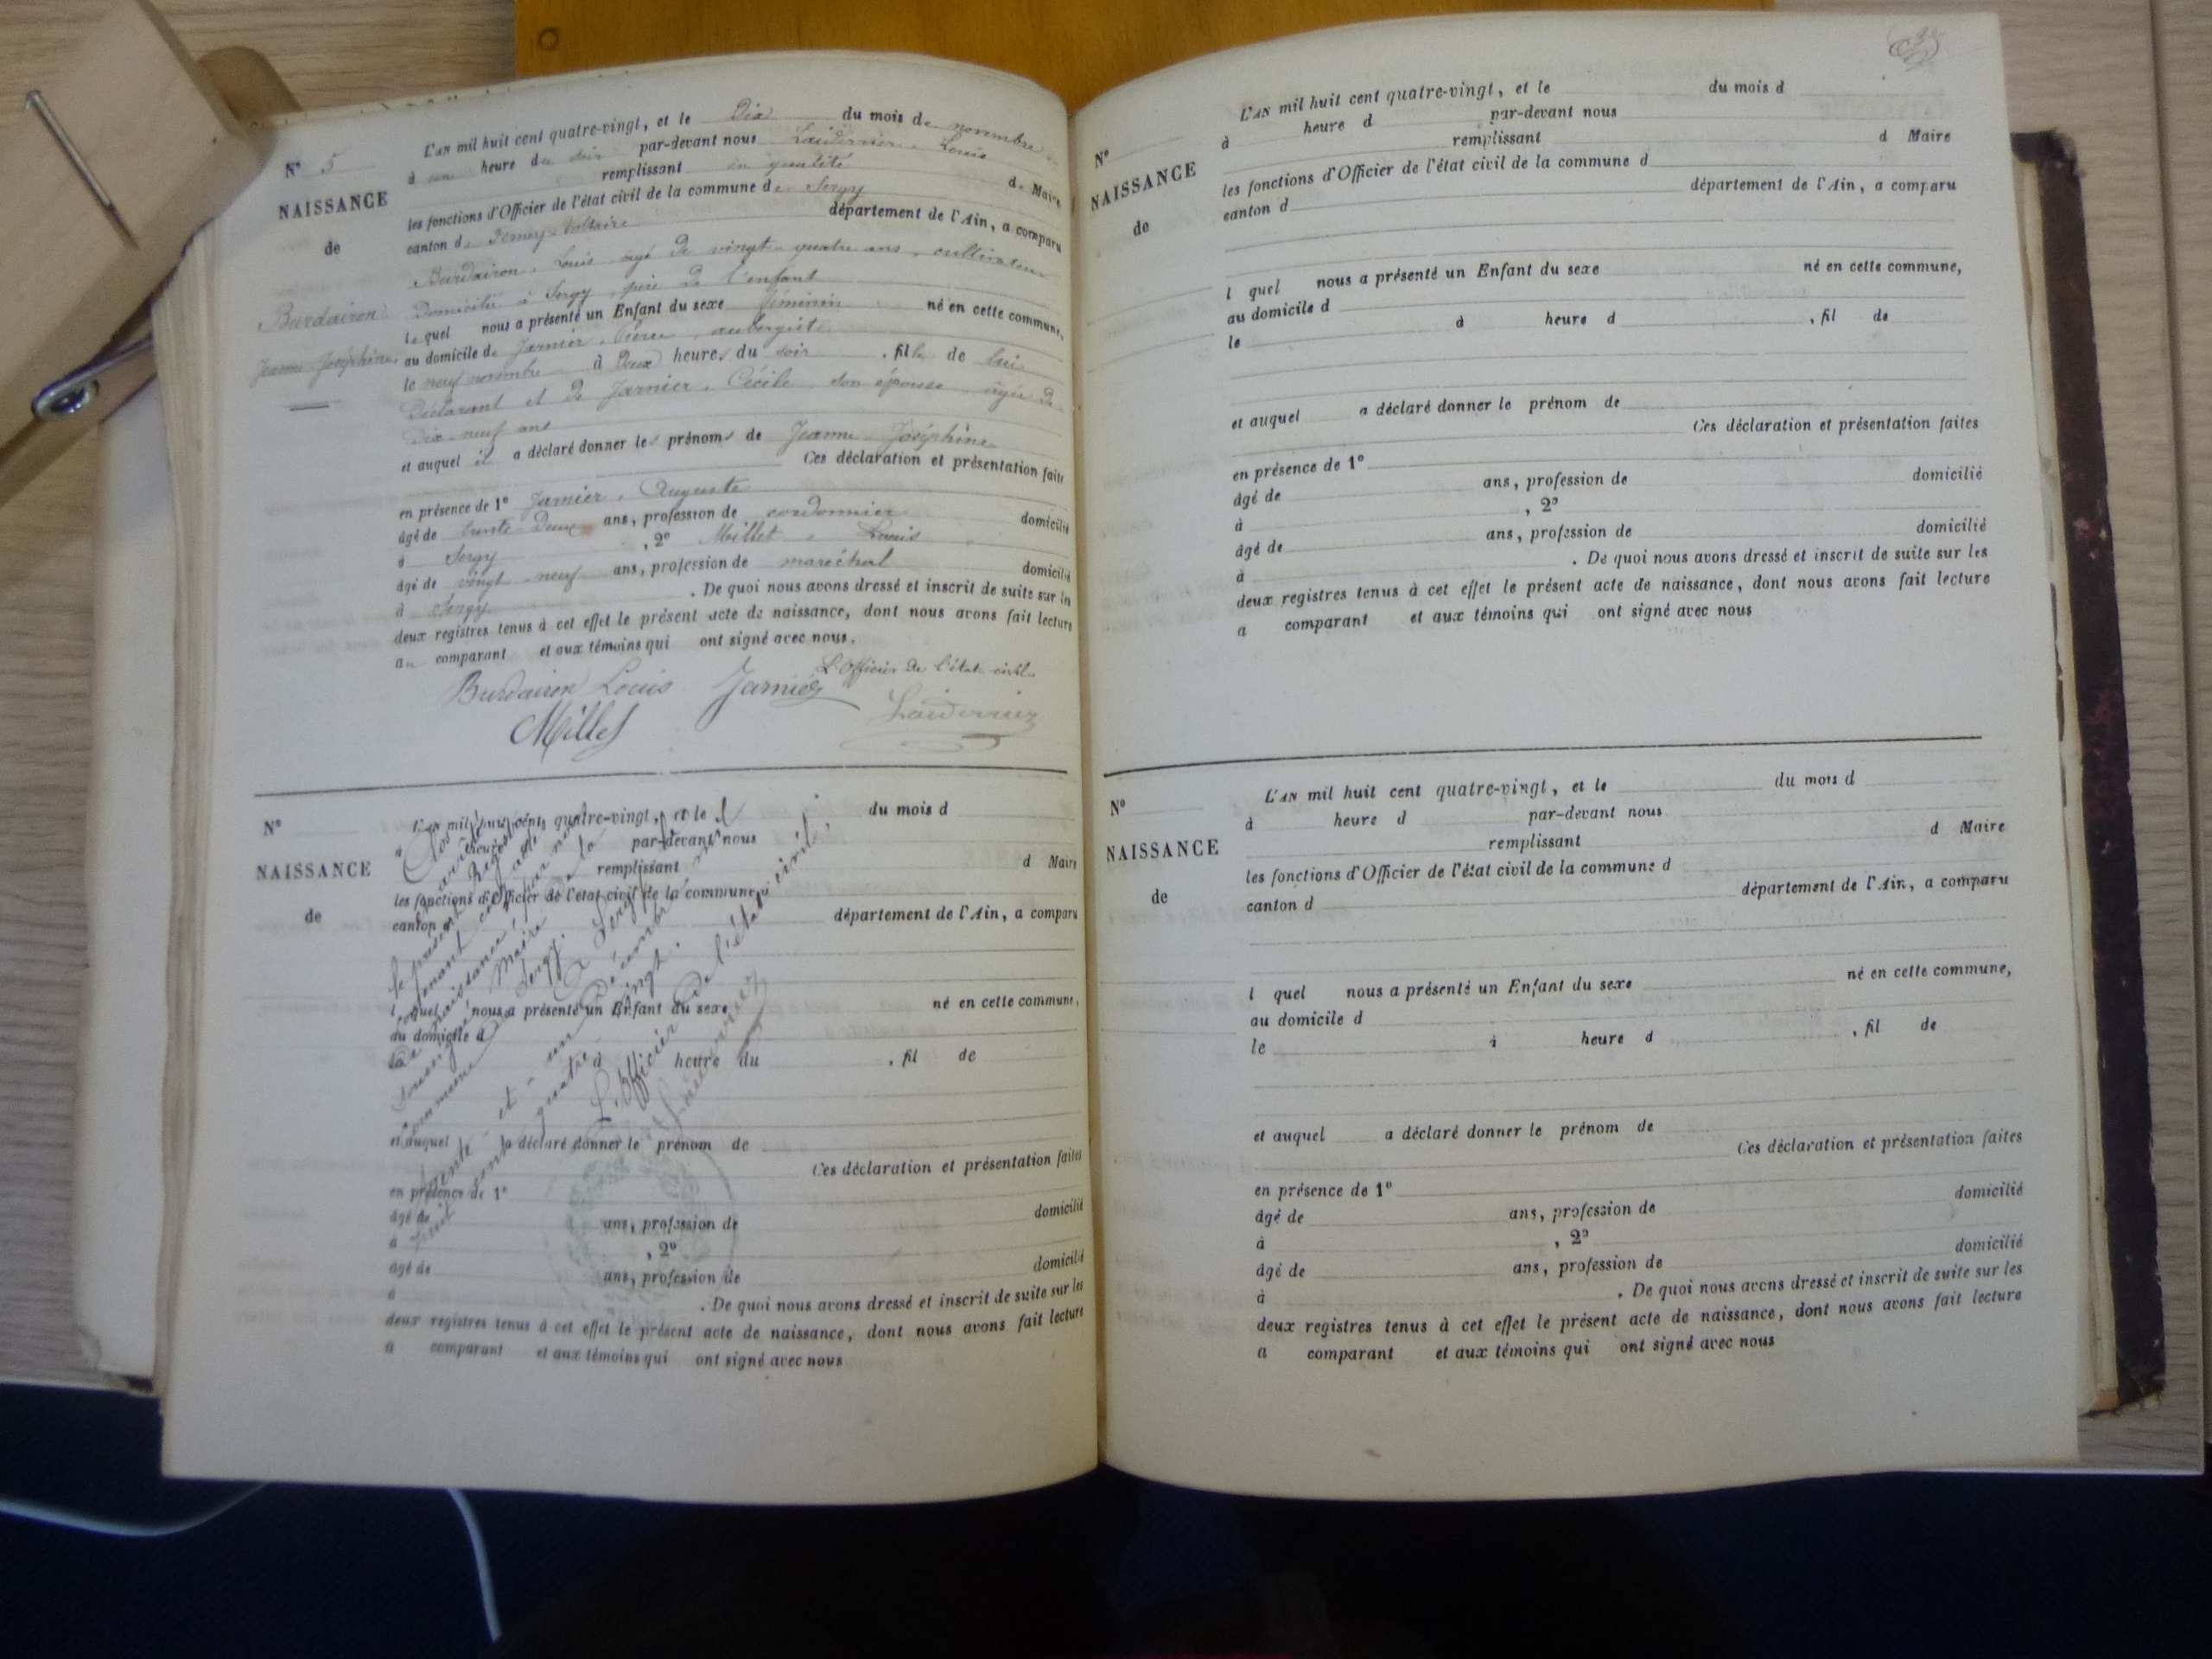 N° 5
NAISSANCE
de
Burdairon
Jeanne Joséphine
L'AN mil huit cent quatre-vingt, et le Dix du mois de novembre
à une heure du soir par-devant nous Louis
remplissant en qualité de Maire
les fonctions d'Officier de l'état civil de la commune de Sergy
canton de Ferney-Voltaire département de l'Ain, a comparu
Burdairon, Louis agé de vingt-quatre ans, cultivateur
Domicilié à Sergy, père de l'enfant
lequel nous a présenté un Enfant du sexe féminin né en cette commune,
au domicile de Jarnier, aubergiste
le neuf novembre à Deux heures du soir, fille de lui
Déclarant et de Jarnier, Cécile, son épouse, agée de
Dix-neuf ans
et auquel il a déclaré donner les prénoms de Jeanne Joséphine
Ces déclaration et présentation faite
en présence de 1° Jarnier, Auguste
âgé de trente Deux ans, profession de cordonnier domicilié
à Sergy, 2° Millet, Louis
âgé de vingt-neuf ans, profession de maréchal domicilié
à Sergy. De quoi nous avons dressé et inscrit de suite sur les
deux registres tenus à cet effet le présent acte de naissance, dont nous avons fait lecture
au comparant et aux témoins qui ont signé avec nous.
L'Officier de l'état civil
Burdairon Louis Jarnier
Millet
N°
NAISSANCE
de
L'AN mil huit cent quatre-vingt, et le du mois d
à heure par-devant nous
remplissant d Maire
les fonctions d'Officier de l'état civil de la commune d
canton d département de l'Ain, a comparu
l quel nous a présenté un Enfant du sexe né en cette commune,
au domicile d
le à heure du , fil de
et auquel a déclaré donner le prénom de
Ces déclaration et présentation faites
en présence de 1°
âgé de ans, profession de domicilié
à , 2°
âgé de ans, profession de domicilié
à . De quoi nous avons dressé et inscrit de suite sur les
deux registres tenus à cet effet le présent acte de naissance, dont nous avons fait lecture
a comparant et aux témoins qui ont signé avec nous
Clos et arrêté
le présent Registre
contenant cinq actes
de naissance, par nous
soussigné Maire de la
commune de Sergy.
à Sergy le
trente et un Décembre mil
huit cent quatre vingt.
L'Officier de l'état civil,
N°
NAISSANCE
de
L'AN mil huit cent quatre-vingt, et le du mois d
à heure d par-devant nous
remplissant d Maire
les fonctions d'Officier de l'état civil de la commune d
canton d département de l'Ain, a comparu
l quel nous a présenté un Enfant du sexe né en cette commune,
au domicile d
le à heure d , fil de
et auquel a déclaré donner le prénom de
Ces déclaration et présentation faites
en présence de 1°
âgé de ans, profession de domicilié
à , 2°
âgé de ans, profession de domicilié
à . De quoi nous avons dressé et inscrit de suite sur les
deux registres tenus à cet effet le présent acte de naissance, dont nous avons fait lecture
a comparant et aux témoins qui ont signé avec nous
N°
NAISSANCE
de
L'AN mil huit cent quatre-vingt, et le du mois d
à heure d par-devant nous
remplissant d Maire
les fonctions d'Officier de l'état civil de la commune d
canton d département de l'Ain, a comparu
l quel nous a présenté un Enfant du sexe né en cette commune,
au domicile d
le à heure d , fil de
et auquel a déclaré donner le prénom de
Ces déclaration et présentation faites
en présence de 1°
âgé de ans, profession de domicilié
à , 2°
âgé de ans, profession de domicilié
à . De quoi nous avons dressé et inscrit de suite sur les
deux registres tenus à cet effet le présent acte de naissance, dont nous avons fait lecture
a comparant et aux témoins qui ont signé avec nous